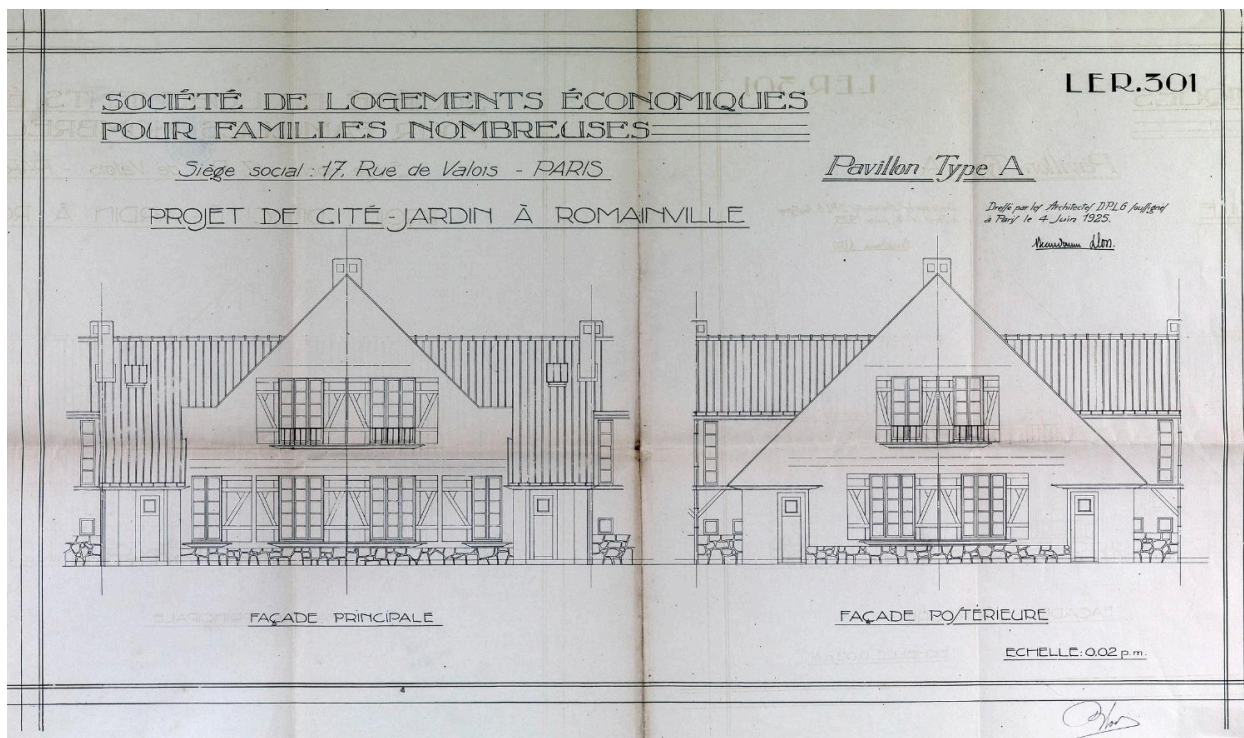 LER.301
SOCIÉTÉ DE LOGEMENTS ÉCONOMIQUES
POUR FAMILLES NOMBREUSES
Siège social : 17, Rue de Valois - PARIS
Pavillon Type A
PROJET DE CITÉ-JARDIN À ROMAINVILLE
Dressé par les Architectes D.P.L.G soussignés
à Paris le 4 Juin 1925.
FAÇADE PRINCIPALE
FAÇADE POSTÉRIEURE
ECHELLE: 0.02 p.m.